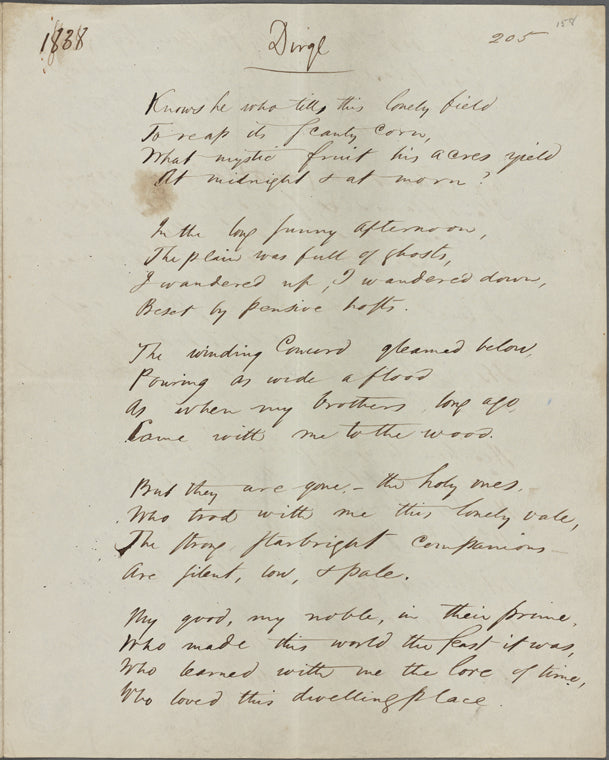 1838
Dirge
205
158
Knows he who tills this lonely field
To reap its scanty corn,
What mystic fruit his acres yield
At midnight & at morn?
In the long sunny afternoon,
The plain was full of ghosts,
I wandered up, I wandered down,
Beset by pensive hosts.
The winding Concord gleamed below,
Pouring as wide a flood
As when my brothers, long ago,
Came with me to the wood.
But they are gone, – the holy ones,
Who trod with me this lonely vale,
The strong, starbright companions –
Are silent, low, & pale.
My good, my noble, in their prime,
Who made this world the feast it was,
Who learned with me the lore of time,
Who loved this dwelling place.